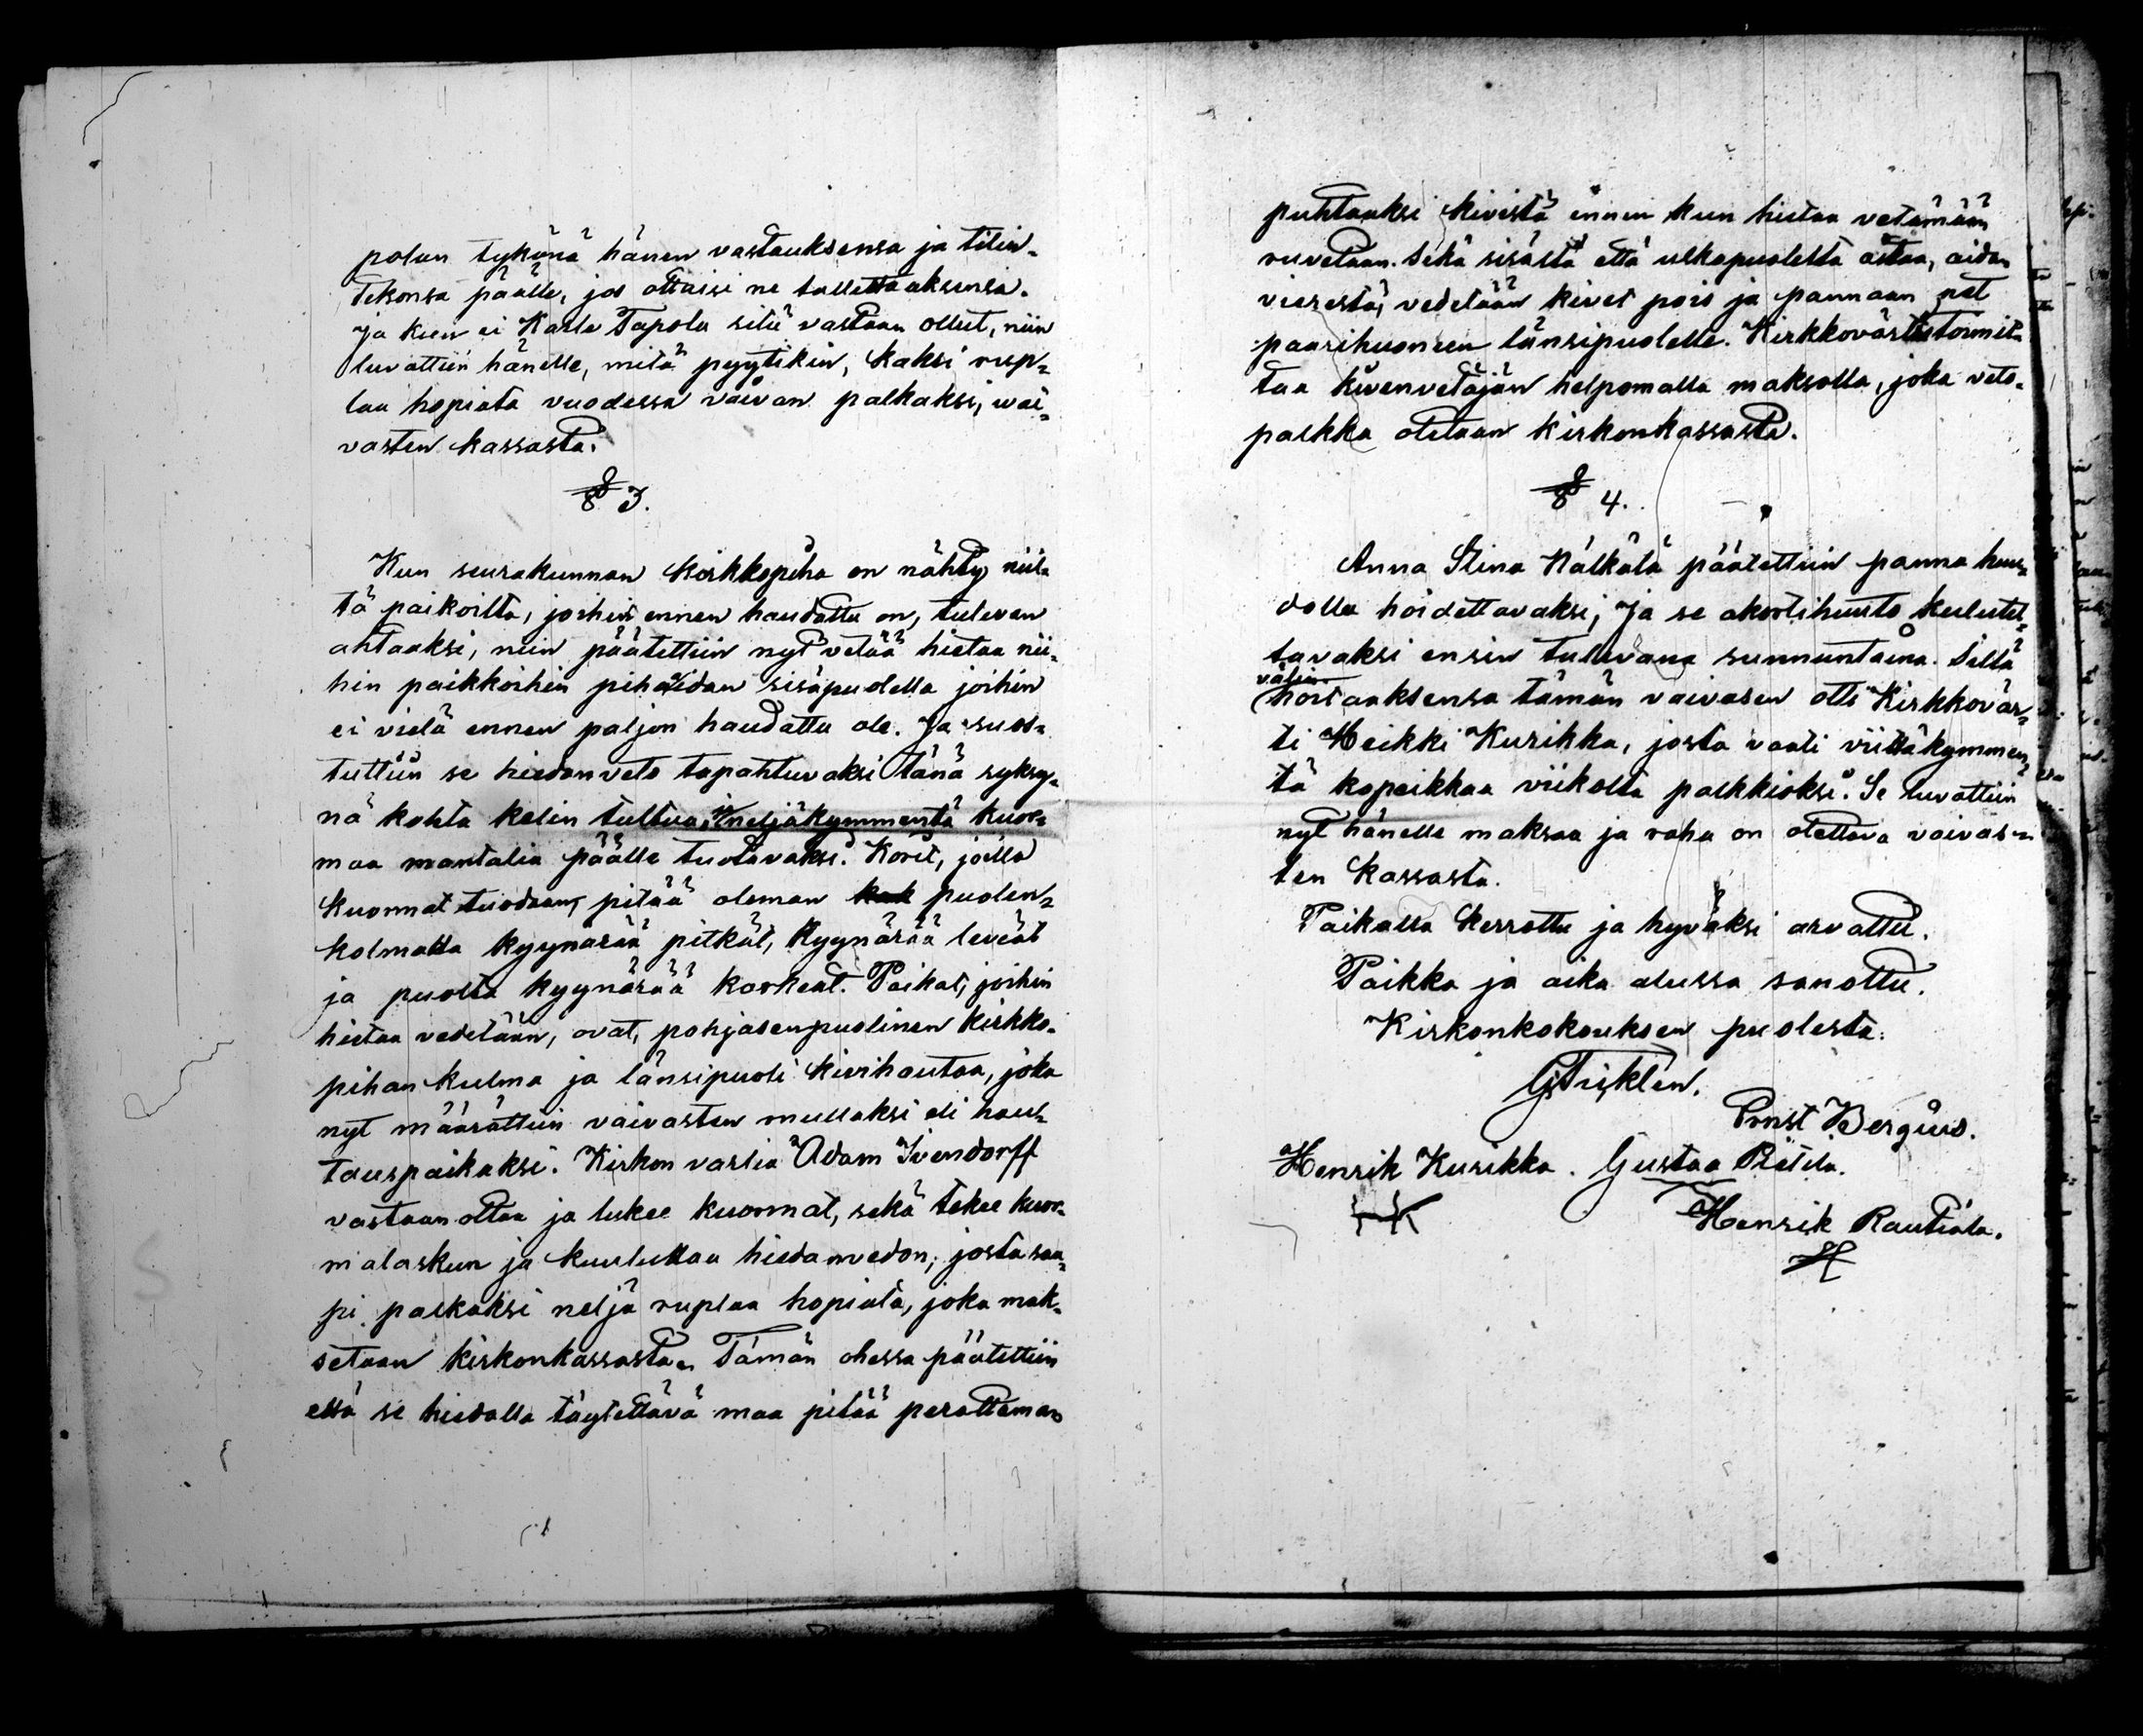 polan tykönä hänen vastauksensa ja tilin-
tekonsa päälle, jos ottaisi ne tallettaaksensa.
Ja kun ei Karle Tapola sitä vastaan ollut, niin
luvattiin hänelle, mitä pyytikin, kaksi rup-
laa hopiata vuodessa vaivan palkaksi, vai-
vasten kassasta.
§ 3.
Kun seurakunnan kirkkopiha on nähty niil-
tä paikoilta, joihin ennen haudattu on, tulevan
ahtaaksi, niin päätettiin nyt vetää hietaa nii-
hin paikkoihin piha aidan sisäpuolella joihin
ei vielä ennen paljon haudattu ole. Ja suos-
tuttiin se hiedanveto tapahtuvaksi tänä syksy-
nä kohta kelin tultua, ja neljäkymmentä kuor-
maa mantalia päälle tuotavaksi. Korit, joilla
kuormat tuodaan, pitää oleman puolen-
kolmatta kyynärää pitkät, kyynärää leveät
ja puolta kyynärää korkeat. Paikat, joihin
hietaa vedetään, ovat, pohjasenpuolinen kirkko-
pihan kulma ja länsipuoli kivihautaa, joka
nyt määrättiin vaivasten mullaksi eli hau-
tauspaikaksi. Kirkon vartia Adam Ivendorff
vastaan ottaa ja lukee kuormat, sekä tekee kuor-
malaskun ja kuuluttaa hiedanvedon, josta saa-
pi palkaksi neljä ruplaa hopiata, joka mak-
setaan kirkonkassasta. Tämän ohessa päätettiin
että se hiedalla täytettävä maa pitää perattaman
puhtaaksi kivistä ennen kun hietaa vetämään
ruvetaan. Sekä sisästä että ulkapuolelta aitaa, aidan
vierestä, vedetään kivet pois ja pannaan net
paarihuoneen länsipuolelle. Kirkkovärsti toimit-
taa kivenvetäjän helpomalla maksolla, joka veto-
palkka otetaan kirkonkassasta.
§ 4.
Anna Stina Nälkälä päätettiin panna huu-
dolla hoidettavaksi, ja se akortihuuto kuulutet-
tavaksi ensin tulevana sunnuntaina. Sillä
välin
hoitaaksensa tämän vaivasen otti Kirkkovär-
ti Heikki Kurikka, josta vaati viittäkymmen-
tä kopeikkaa viikolta palkkioksi. Se luvattiin
nyt hänelle maksaa ja raha on otettava vaivas-
ten kassasta.
Paikalla kerrottu ja hyväksi arvattu.
Paikka ja aika alussa sanottu.
Kirkonkokouksen puolesta:
Ernst Bergius.
Henrik Kurikka. Gustaa Pietila.
Henrik Rautiala.